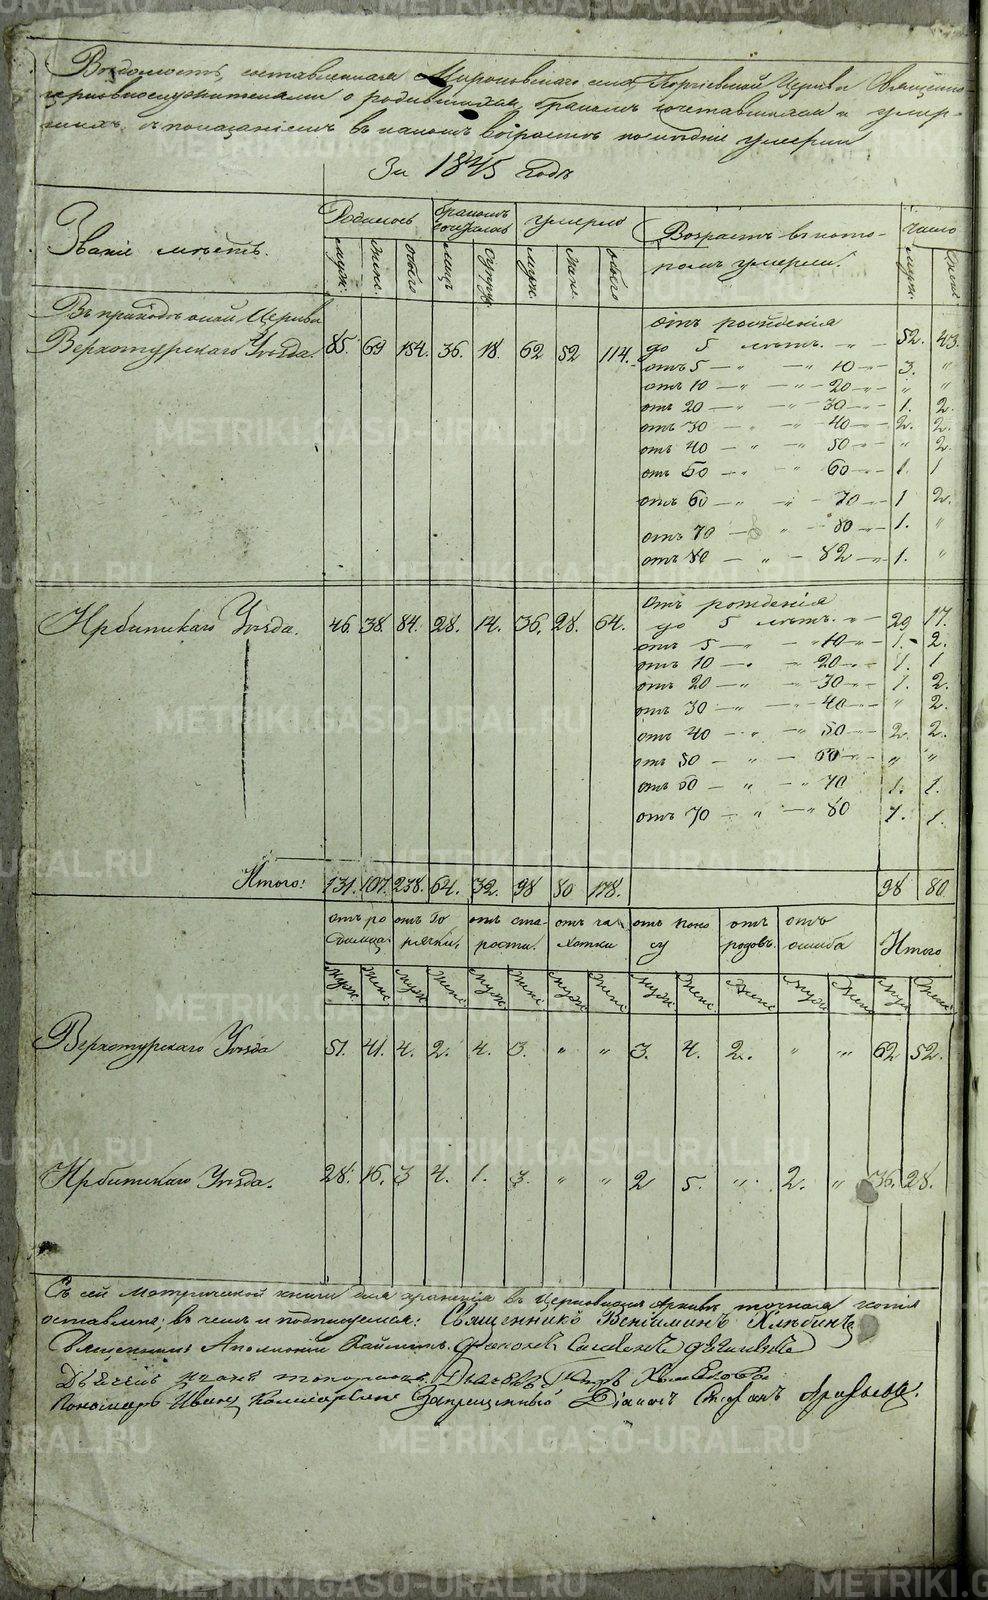 Ведомость, составленная Мироновскаго села Церкви Священно
церковнослужителями о родившихся, бракомъ сочетавшихся и умер-
шихъ, съ показаніемъ въ какомъ возрастѣ послѣдніе умерли
За 1845 годъ
Званіе мѣстъ. Родилось бракомъ умерло Возрастъ въ кото- Число
ромъ умерли.
муж. женс. обоего лицъ супруж. муж. женс. обоего муж. женс.
Въ приходѣ оной Церкви отъ рожденія
Верхотурскаго Уѣзда. 85. 69 154. 36. 18. 62 52 114. до 5 лѣтъ. 52. 43.
отъ 5 — " — " 10 — 3. "
отъ 10 — " — " 20 — " "
отъ 20 — " — " 30 — 1. 2.
отъ 30 — " — " 40 — 2. 2.
отъ 40 — " — " 50 — " 2
отъ 50 — " — " 60 — 1. 1
отъ 60 — " — " 70 — 1 2.
отъ 70 — " — 80 — 1. "
отъ 80 — " — 82 — 1. "
отъ рожденія
Ирбитскаго Уѣзда. 46. 38. 84. 28. 14. 36. 28. 64. до 5 лѣтъ. 29 17.
отъ 5 — " — " 10 — 1. 2.
отъ 10 — " — " 20 — 1. 1
отъ 20 — " — " 30 — 1. 2.
отъ 30 — " — " 40 — " 2.
отъ 40 — " — " 50 — 2. 2.
отъ 50 — " — 60 — " "
отъ 60 — " — " 70 1. 1.
отъ 70 — " — " 80 1. 1.
Итого: 131. 107. 238. 64. 32. 98 80 178. 98 80
отъ ро отъ го отъ ста- отъ ча- отъ поно отъ отъ Итого
димца. рячки. рости. хотки су родовъ. ошиба
муж. женс. муж. женс. муж. женс. муж. женс. муж. женс. женс. муж. женс. муж. женс.
Верхотурскаго Уѣзда 51. 41. 4. 2. 4. 3. " " 3. 4. 2. " " 62 52.
Ирбитскаго Уѣзда. 28. 16. 3 4. 1. 3. " " 2 5. " 2. " 36. 28.
Съ сей метрической книги для храненія въ Церковномъ Архивѣ точная копія
оставлена; въ чемъ и подписуемся: Священникъ Веніаминъ Хлѣбинъ
Священникъ Аполлоній
Дьячекъ
Пономарь Иванъ Запрещенный Діаконъ Стефанъ
METRIKI.GASO-URAL.RU